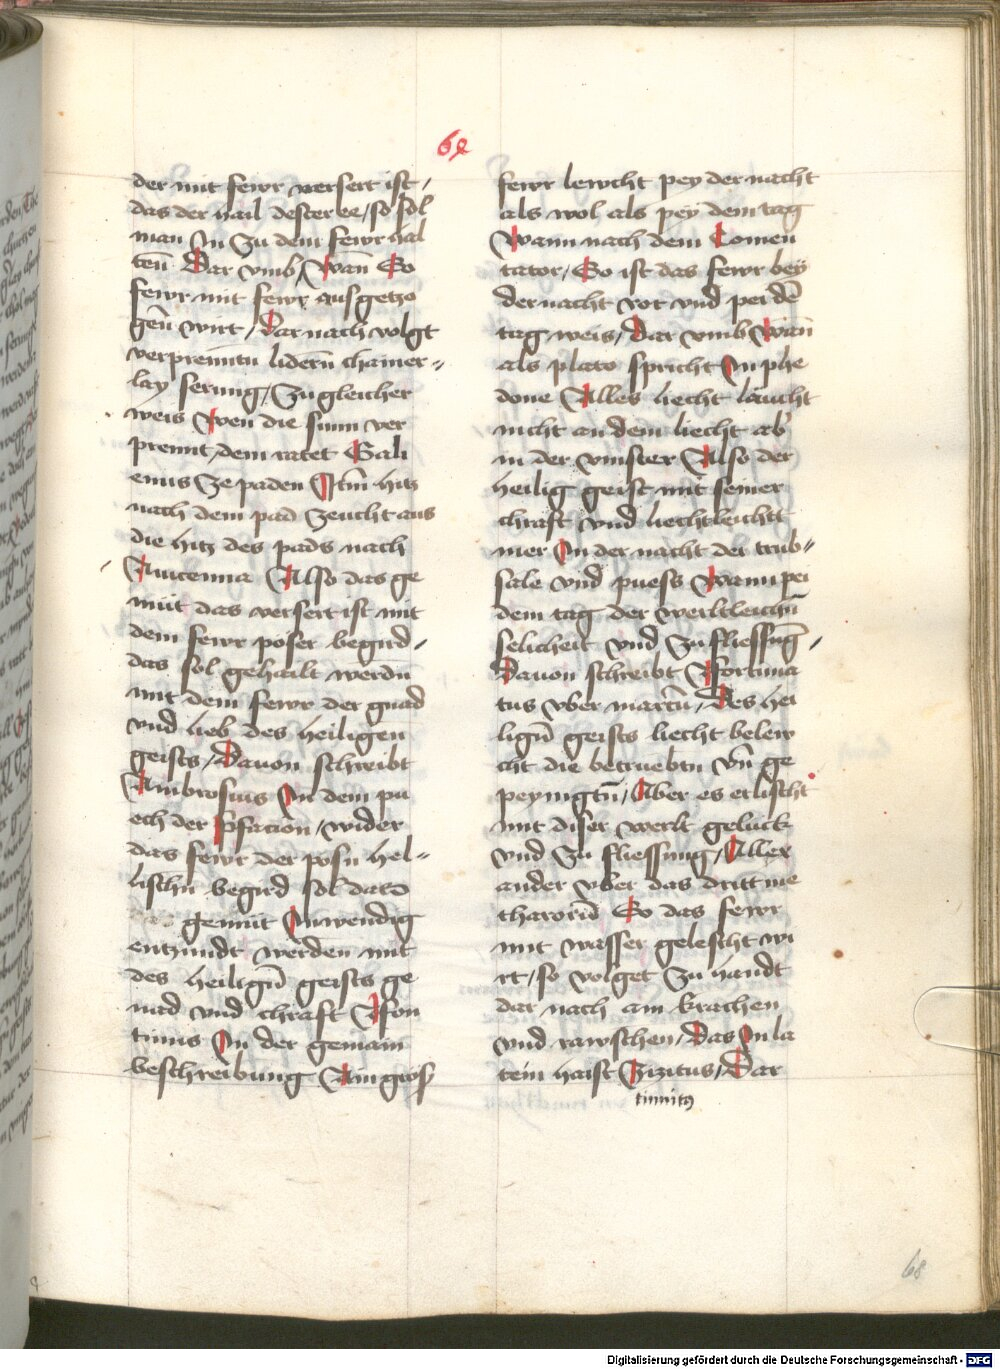 68
der mit fewr versert ist /
das der hail dester ee / so sol
man In zu dem fewr hal
ten̄ Dar vmb / Wan̄ So
fewr mit fewr ausgetzo
gen̄ wirt / Dar nach volgt
verprenntn̄ lidern̄ chainer-
lay serung / Zu gleicher
weis Wen die sunn ver
prennt / dem ratet Gali
enus Ze paden Itm̄ hitz
nach dem pad Zeucht aus
die hitz des pads nach
Auicenna Also das ge
müt das versert ist mit
dem fewr poser begird /
das sol gehailt werdn̄
mit dem fewr der gnad
vnd lieb des heiligen
geists / Dauon schreibt
Ambrosius In dem pu
ech der / wider
das fewr der posn̄ hel-
lischn̄ begird sol das
gemüt Inwendig
entzündt werden mit
des heilign̄ geists ge
nad vnd chraft
In der gemain
beschreibung Ain gros
fewr lewcht pey der nacht
als wol als pey dem tag
Wann nach dem Comen
tator / So ist das fewr bey
der nacht rot vnd pei dē
tag weis / Dar vmb Wan̄
als plato spricht In phe
done Alles liecht laucht
nicht an dem liecht ab'
in der vinster Also der
heilig geist mit seiner
chraft vnd liecht leichtt
mer In der nacht der trub-
sale vnd puess Wann pei
dem tag der werltleichn̄
selicheit vnd Zufliessung /
Dauon schreibt Fortuna
tus vber marcū / Des hei
lign̄ geists liecht belew
cht die betruebtn̄ vn̄ ge
peynigtn̄ / Aber es erlischt
mit diser werlt geluck
vnd Zu fliessung / Allex
ander vber das dritt me
thaoror̄ So das fewr
mit wasser gelescht wi
rt / so volget Zu handt
dar nach ain krachen
vnd rawschen / Das In la
tein haist Zizitus / Dar
tinnitus
68
Digitalisierung gefördert durch die Deutsche Forschungsgemeinschaft - DFG